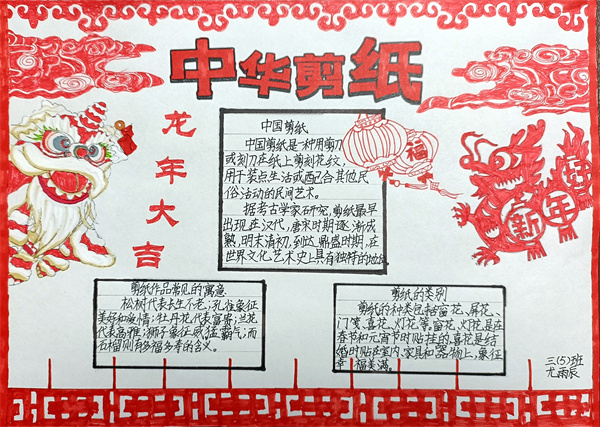 中华剪纸
龙年大吉
中国剪纸
中国剪纸是一种用剪刀
或刻刀在纸上剪刻花纹,
用于装点生活或配合其他民
俗活动的民间艺术。
据考古学家研究,剪纸最早
出现在汉代,唐宋时期逐渐成
熟,明末清初,到达鼎盛时期,在
世界文化艺术史上具有独特的地位
福
新年
剪纸作品常见的寓意
松树代表长生不老;孔雀象征
美好和爱情;牡丹花代表富贵;兰花
代表高雅;狮子象征威猛霸气;而
石榴则有多福多寿的含义。
剪纸的类别
剪纸的种类包括窗花、屏花、
门笺、喜花、灯花等,窗花,灯花是在
春节和元宵节时贴挂的,喜花是结
婚时贴在室内、家具和器物上,象征
幸福美满。
三(5)班
尤雨辰